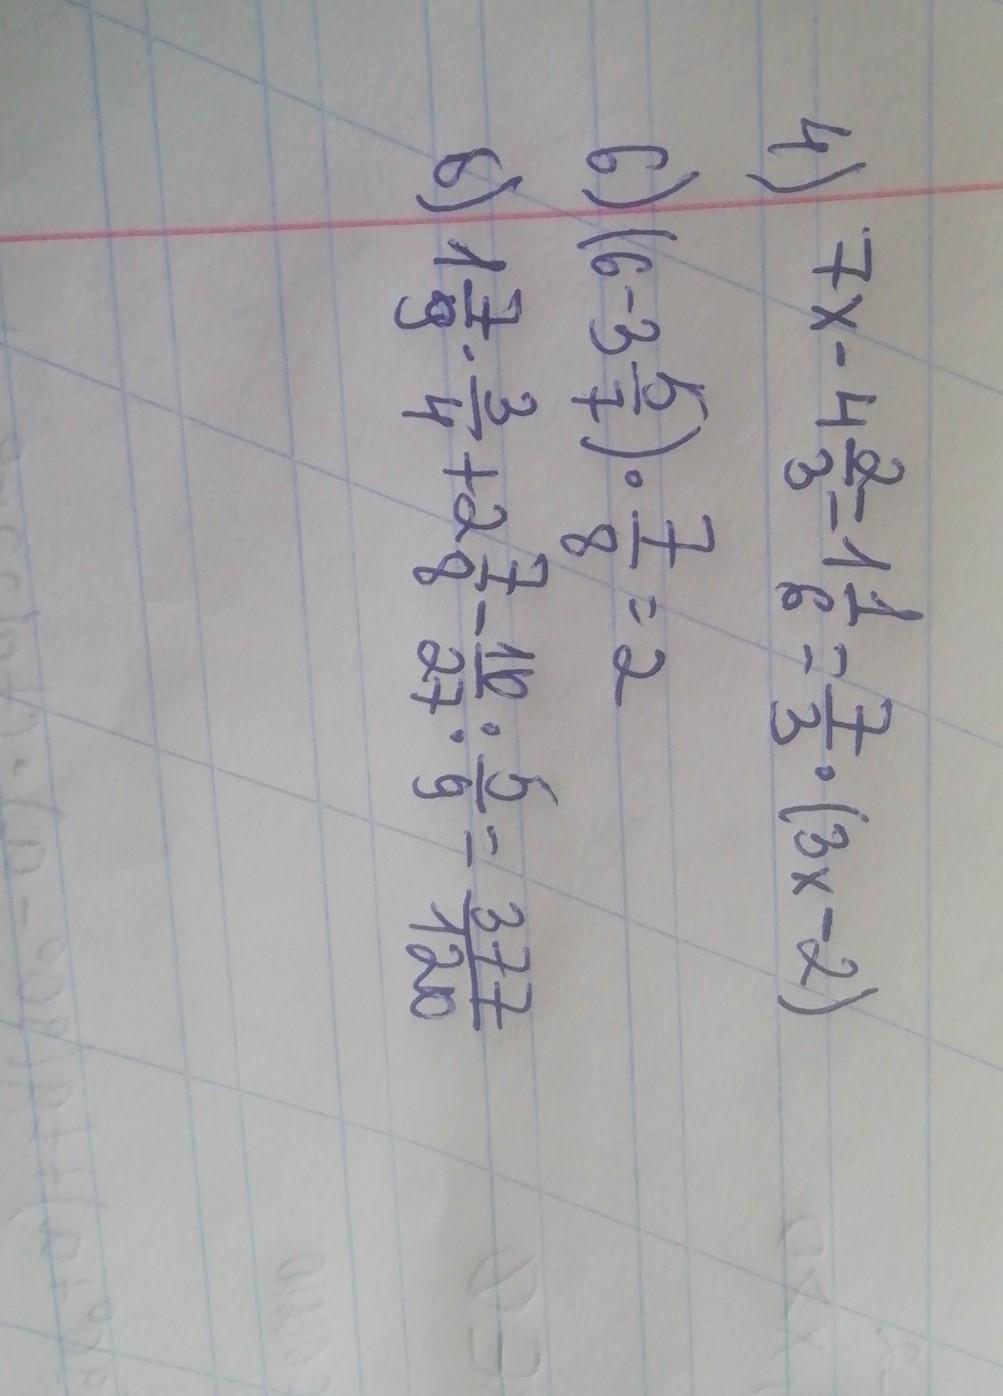 4) 7x - 4 2/3 - 1 1/6 = 7/3 · (3x - 2)
6) (6 - 3 5/7) · 7/8 = 2
8) 1 7/9 · 3/4 + 2 7/8 - 10/27 : 5/9 = 377/120